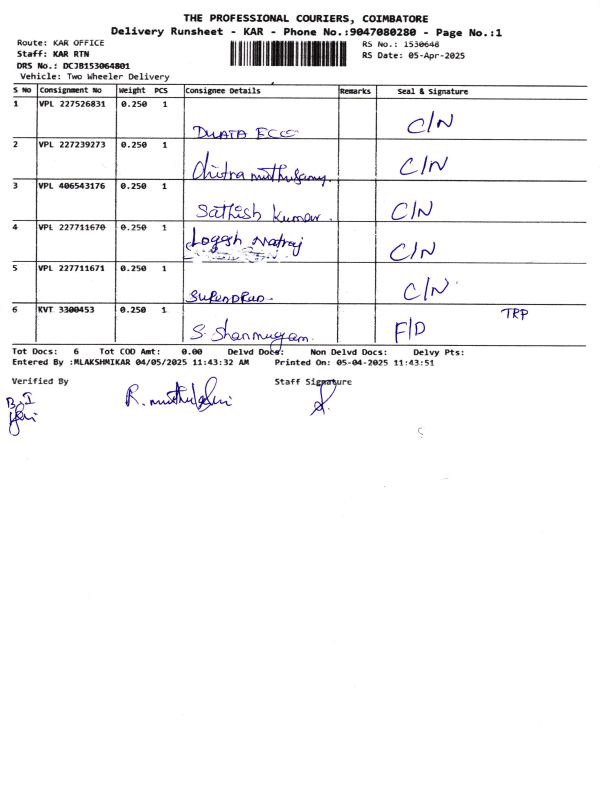 THE PROFESSIONAL COURIERS, COIMBATORE
Delivery Runsheet - KAR - Phone No.:9047080280 - Page No.:1
Route: KAR OFFICE
RS No.: 1530648
Staff: KAR RTN
RS Date: 05-Apr-2025
DRS No.: DCJB153064801
Vehicle: Two Wheeler Delivery
S No Consignment No Weight PCS Consignee Details Remarks Seal & Signature
1 VPL 227526831 0.250 1
C/N
2 VPL 227239273 0.250 1
Chitra muthusamy. C/N
3 VPL 406543176 0.250 1
Sathish Kumar. C/N
4 VPL 227711670 0.250 1
Logesh Natraj C/N
5 VPL 227711671 0.250 1
C/N
6 KVT 3300453 0.250 1 TRP
S. Shanmugam. F/D
Tot Docs: 6 Tot COD Amt: 0.00 Delvd Docs: Non Delvd Docs: Delvy Pts:
Entered By :MLAKSHMIKAR 04/05/2025 11:43:32 AM Printed On: 05-04-2025 11:43:51
Verified By Staff Signature